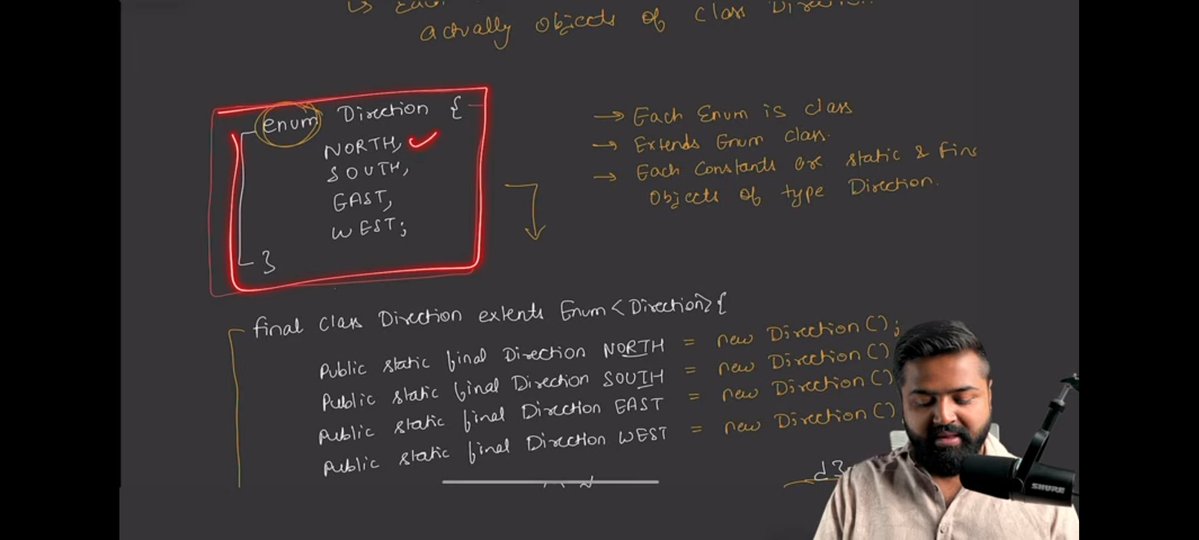 actually objects of class
enum Direction {
NORTH,
SOUTH,
EAST,
WEST;
}
→ Each Enum is class
→ Extends Enum class.
→ Each Constants are static &
Objects of type Direction.
final class Direction extents Enum<Direction>{
Public static final Direction NORTH = new Direction();
Public static final Direction SOUTH = new Direction()
Public static final Direction EAST = new Direction()
Public static final Direction WEST = new Direction()
SHURE